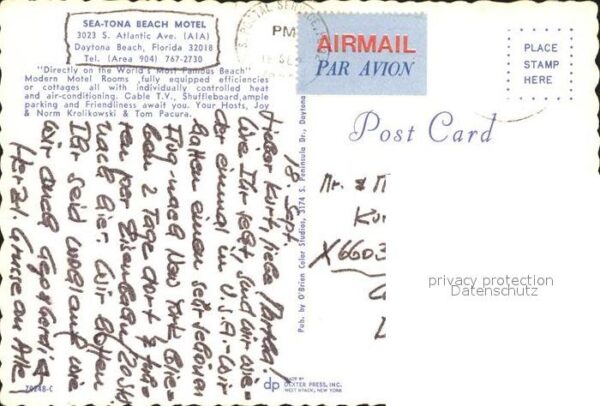 SEA-TONA BEACH MOTEL
3023 S. Atlantic Ave. (A1A)
Daytona Beach, Florida 32018
Tel. (Area 904) 767-2730
"Directly on the World's Most Famous Beach"
Modern Motel Rooms ,fully equipped efficiencies
or cottages all with individually controlled heat
and air-conditioning. Cable T.V., Shuffleboard,ample
parking and Friendliness await you. Your Hosts, Joy
& Norm Krolikowski & Tom Pacura.
PM
AIRMAIL
PAR AVION
PLACE
STAMP
HERE
Post Card
18. Sept.
Lieber Kurt, liebe
Wie Ihr seht, sind wir wie-
der einmal in U.S.A. Wir
hatten einen sehr schönen
Flug nach New York blie-
ben 2 Tage dort & fuh-
ren per Eisenbahn
nach hier. Wir hoffen
Ihr seid wohlauf wie
wir auch
Herzl. Grüsse an Alle
Pub. by O'Brien Color Studios, 3174 S. Peninsula Dr., Daytona
Mr. &
X6603
privacy protection
Datenschutz
70248-C
dp
MADE BY
DEXTER PRESS, INC.
WEST NYACK, NEW YORK